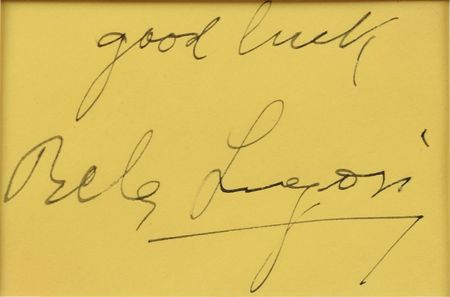 good luck
Bela Lugosi